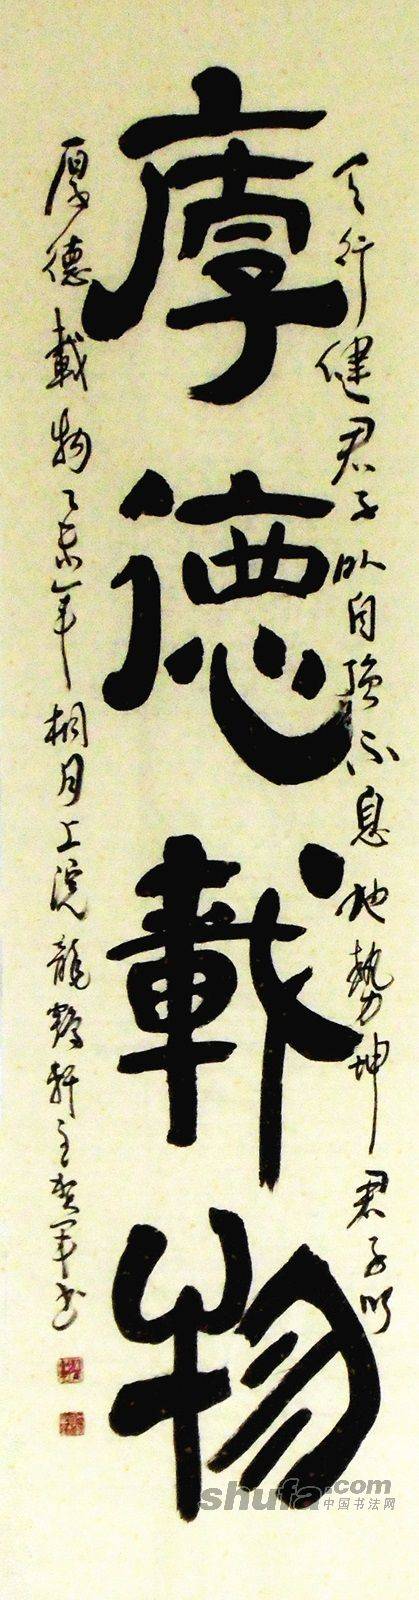 天行健君子以自強不息地勢坤君子以
厚德載物
厚德載物乙未年桐月上浣龍軒主賀軍书
shufa.com
中国书法网